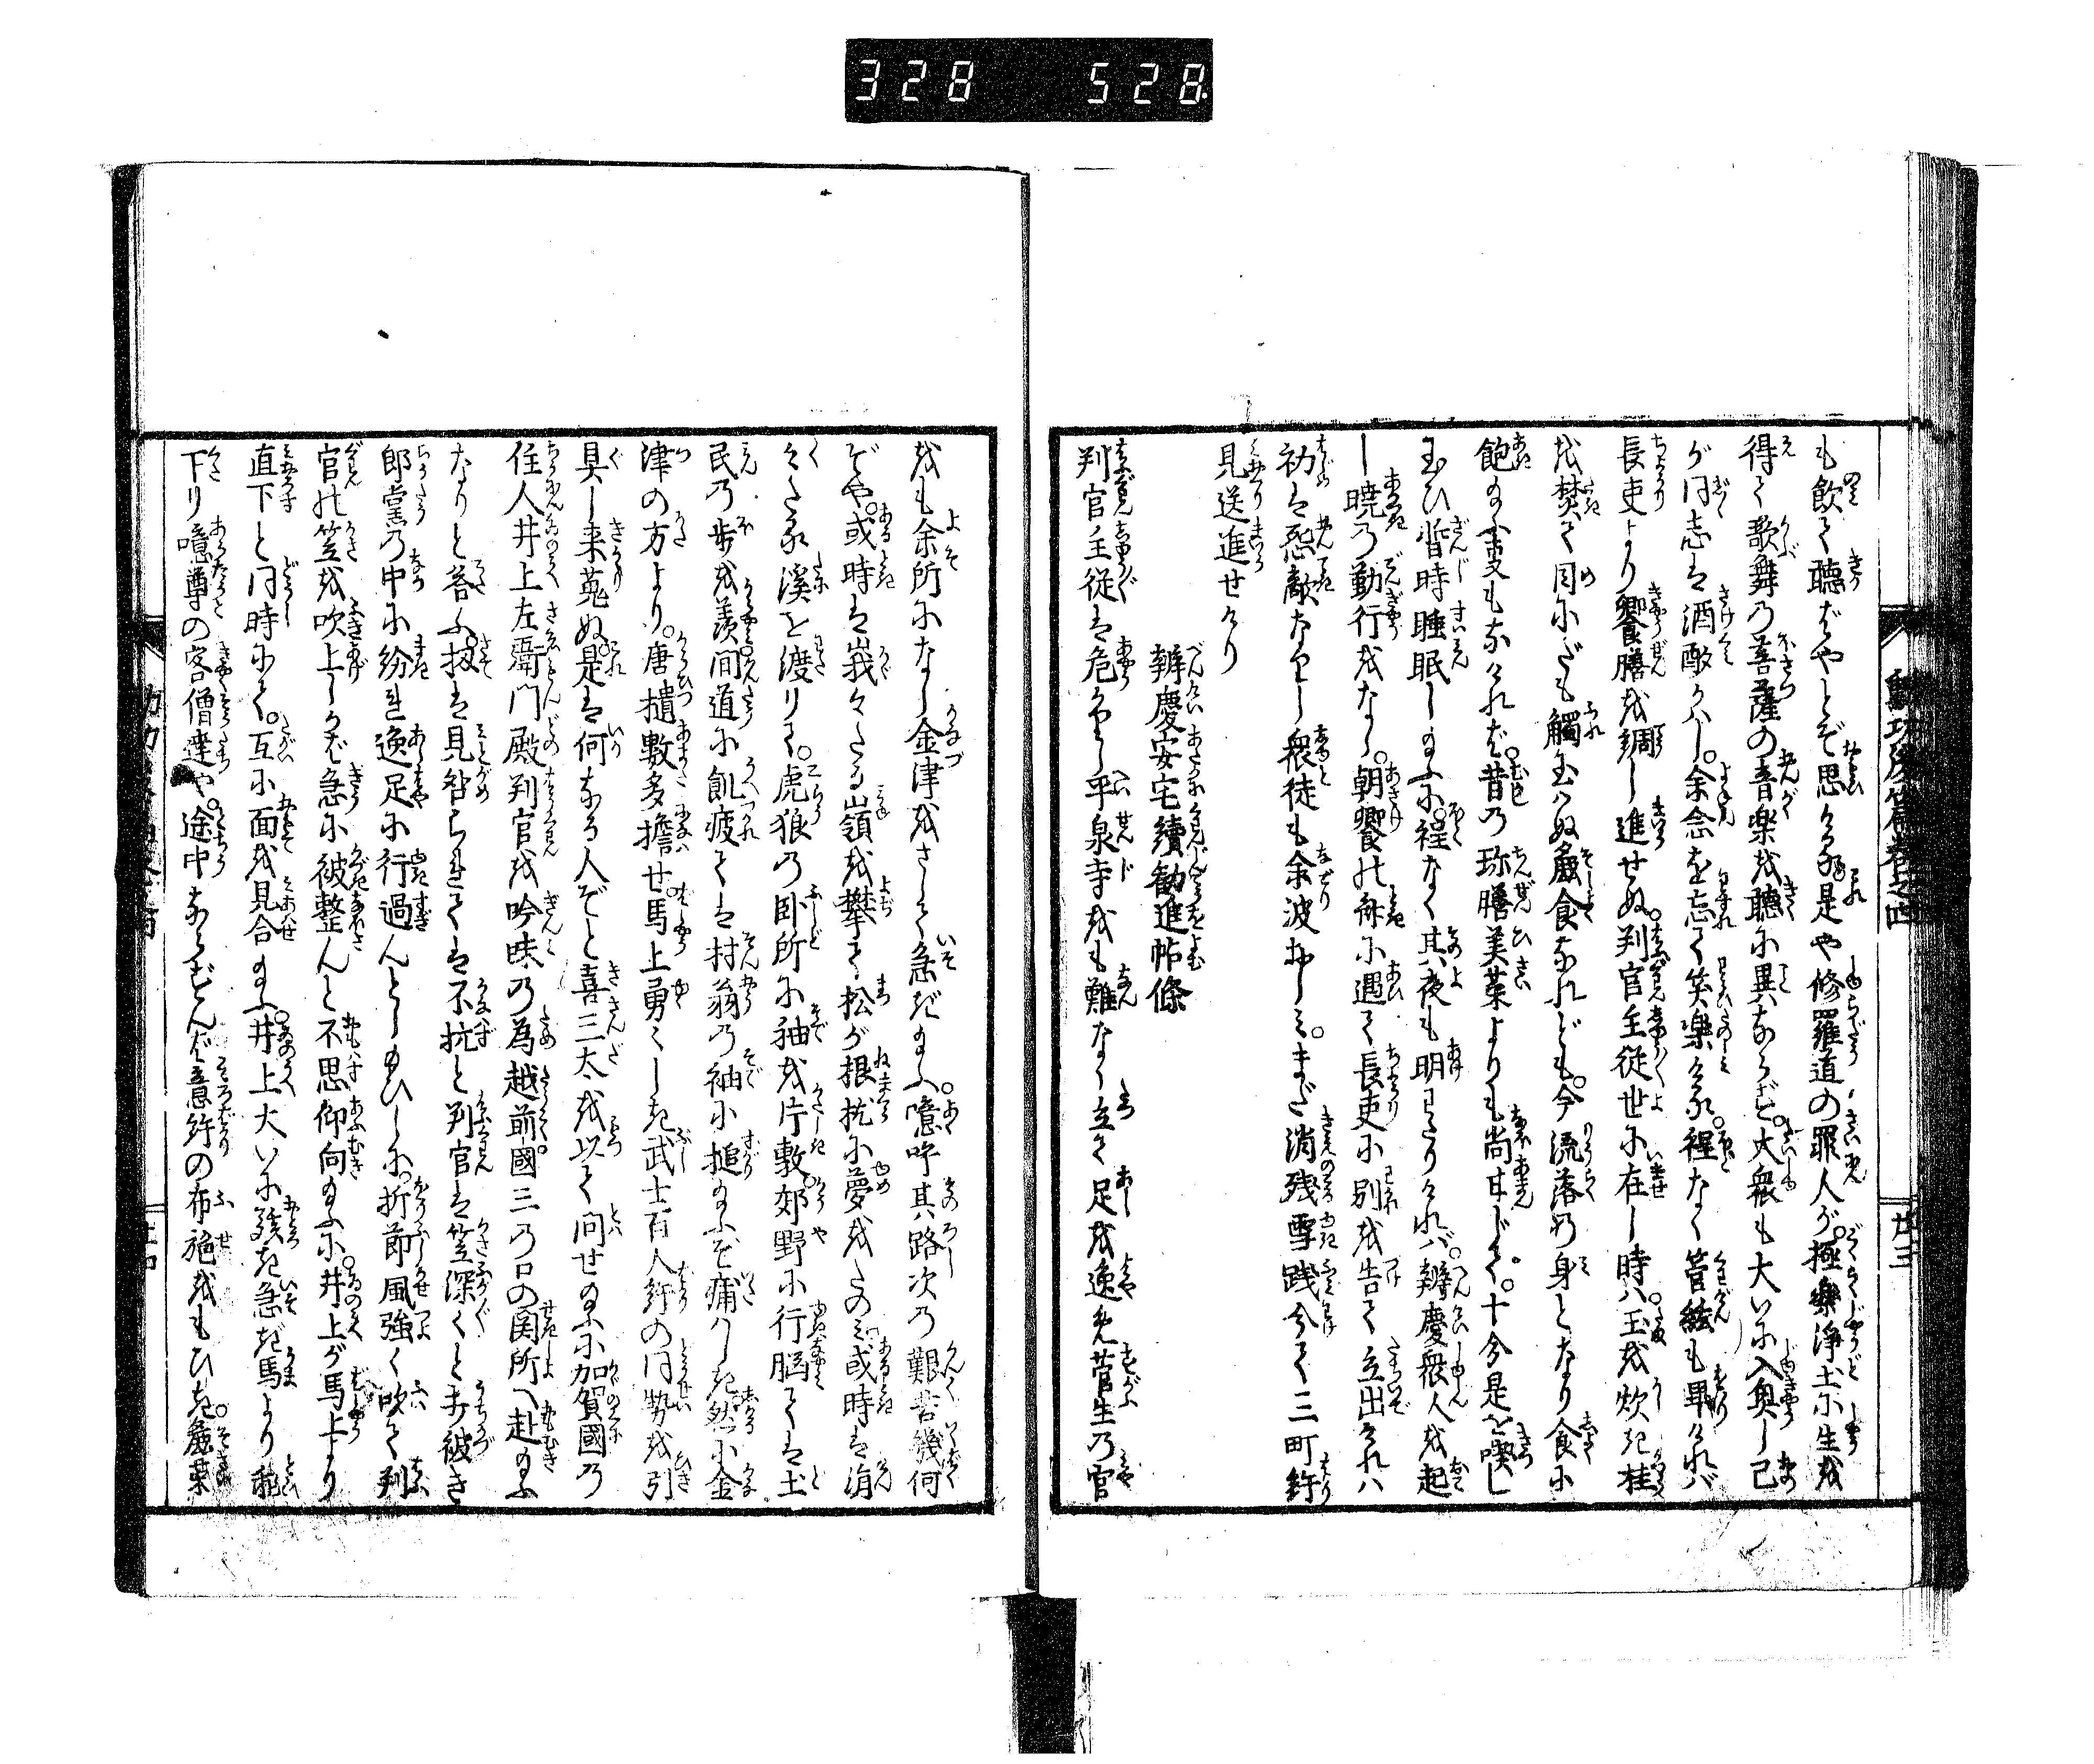 328 528
勲功後篇巻之四
廿三
も飲て聴ばやとぞ思ける是や修羅道の罪人が。極樂浄土に生を
得て歌舞の菩薩の音楽を聴に異ならず。大衆も大いに入奥し己
が同志は酒酌かハし。余念を忘て笑樂ける。程なく管絃も畢けれバ
長吏より饗膳を調し進せぬ。判官主従世に在し時ハ。玉を炊ぎ桂
を焚て目にだも觸玉ハぬ麁食なれども。今流落の身となり食に
飽の事もなけれバ。昔の珎膳美菜よりも尚甘じて。十分是を喫し
玉ひ暫時睡眠し給ふに。程なく其夜も明わたりけれバ。辨慶衆人を起
し暁の勤行をなし。朝饗の齋に遇て長吏に別を告て立出けれハ
初は怨敵たりし衆徒も余波おしみ。まだ消残雪踐分て三町許
見送進せけり
辨慶安宅續勧進帖條
判官主従は危かりし平泉寺をも難なく立て足を逸め菅生の宮
をも余所になし金津をさして急ぎ給ふ。噫呼其路次の艱苦幾何
ぞや。或時は峩々たる嶺を攀て松が根枕に夢をたのミ或時は涓
々たる溪を渡りて。虎狼の臥所に袖を片敷。郊野に行脳ては土
民の歩を羨。間道に飢疲ては村翁の袖に搥給ふぞ痛ハしき。然に金
津の方より。唐櫃數多擔せ馬上勇々しき武士百人許の同勢を引
具し来蒐ぬ。是は何なる人ぞと喜三太を以て問せ給ふに加賀國の
住人井上左衛門殿判官を吟味の為越前國三の口の関所へ赴給ふ
なりと荅ふ。扨は見咎られては不抗と判官は笠深〱と打被き
郎黨の中に紛れ逸足に行過んとし給ひしに。折節風強く吹て判
官の笠を吹上しかバ急に被整んと不思仰向給ふに。井上が馬上より
直下と同時にて。互に面を見合給ふ。井上大いに驚き急ぎ馬より飛
下り噫尊の客僧達や。途中ならずんバ意許の布施をもひき。麁菜